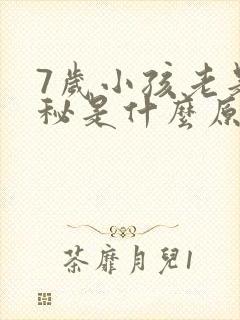 7歲小孩老是
秘是什麼原
荼靡月兒1